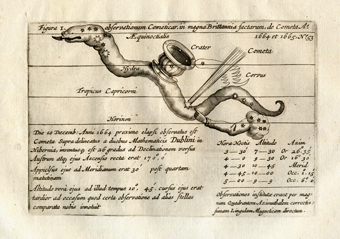 Figura 1. observationum Cometicar. in magna Brittannia factarum, de Cometa A.t
1664 et 1665. N. 53
Æquinoctialis
Crater
Cometa
Hydra
Corvus
Tropicus Capricorni
Horizon
Die 10 Decemb: Anni 1664 proxime elapsi observatus est
Cometa supra delineatus a duobus Mathematicis Dublini in
Hibernia, inventusq est 16 graduū ac Declinationem versus
Austrum atq ejus Ascensio recta erat 170° 0'
Appulsus ejus ad Meridianum erat 30' post quartam
matutinam
Altitudo vero ejus ad illud tempus 10° 45' cursus ejus erat
tardior ad occasum quod certa observatione ad alias stellas
comparata nobis innotuit
Hora Noctis Altitudo Azim
3 — 0 7 — 30 Or 26° 30'
3 — 30 9 — 30 Or 16° 30'
4 — 0 10 — 30
4 — 30 10 — 45 Merid
4 — 45 10 — 15 Oc. 1°
5 — 00 9 — 0 Occ. 6° 0'
Observationes institutæ erant per mag
num Quadrantem Azimuthalem correctis
simum Lingulam Magneticam directum